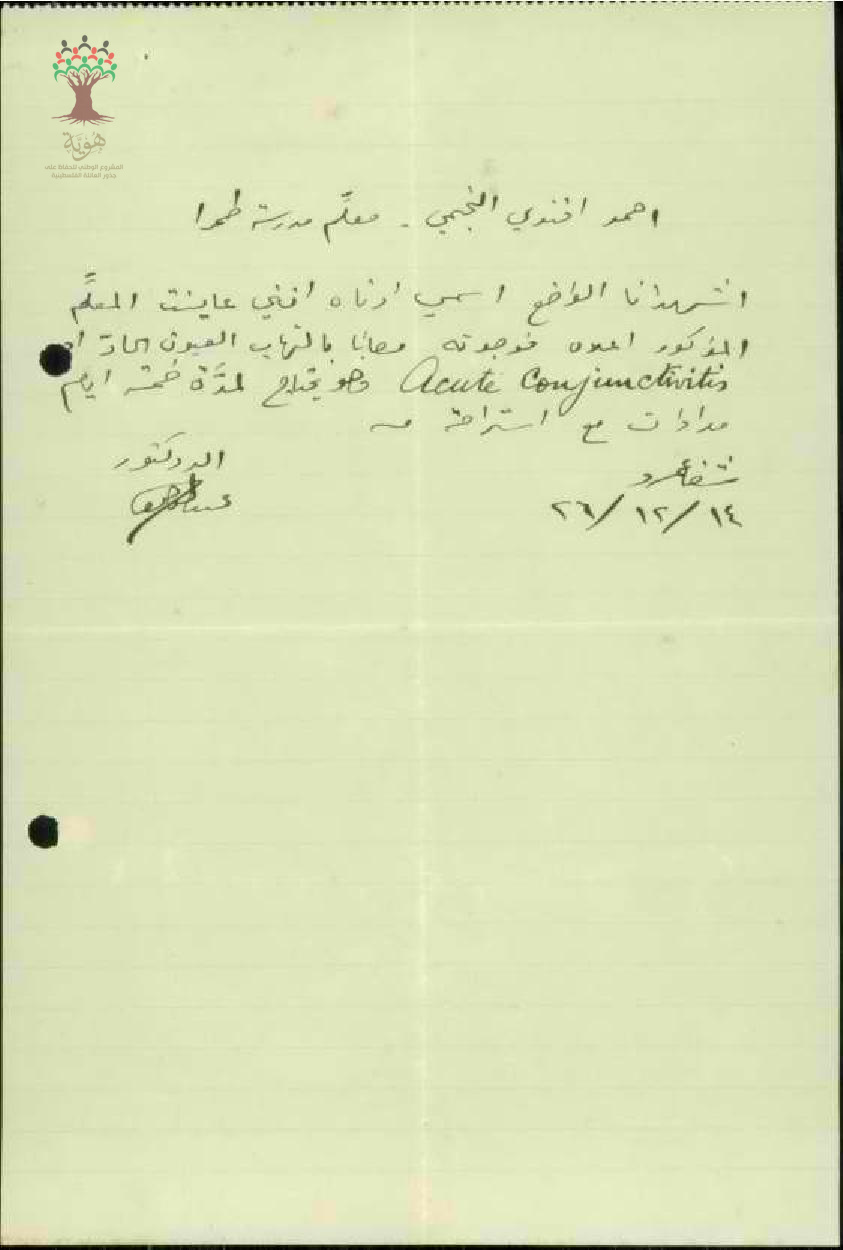 هُويَّة
المشروع الوطني للحفاظ على
جذور العائلة الفلسطينية
احمد افندي النجمي - معلّم مدرسة طمرا
اشهد انا الواضع اسمي ادناه انني عاينت المعلّم
المذكور اعلاه فوجدته مصابًا بالتهاب العيون الحادّ او
Acute Conjunctivitis وهو يحتاج لمدّة خمسة ايام
مداواة مع استراحة
الدكتور
شفاعمرو
١٤/١٢/٢٦